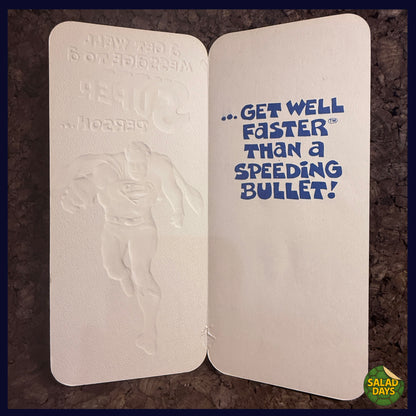 A GET WELL
MESSAGE TO A
SUPER
PERSON...
...GET WELL
FASTER™
THAN A
SPEEDING
BULLET!
SALAD
DAYS